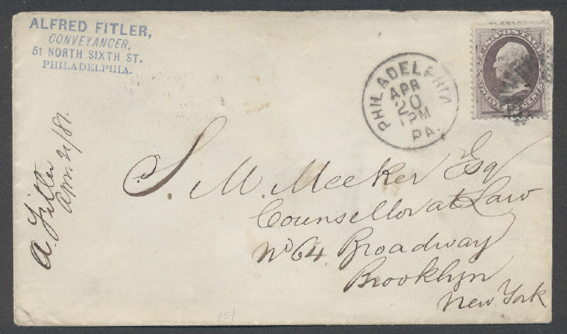 ALFRED FITLER,
CONVEYANCER,
51 NORTH SIXTH ST.
PHILADELPHIA.
PHILADELPHIA
APR
20
1 PM
PA.
POSTAGE
TWELVE CENTS
A. Fitler
Apr. 21/81.
S. M. Meeker Esq
Counsellor at Law
No 64 Broadway
Brooklyn
New York
151